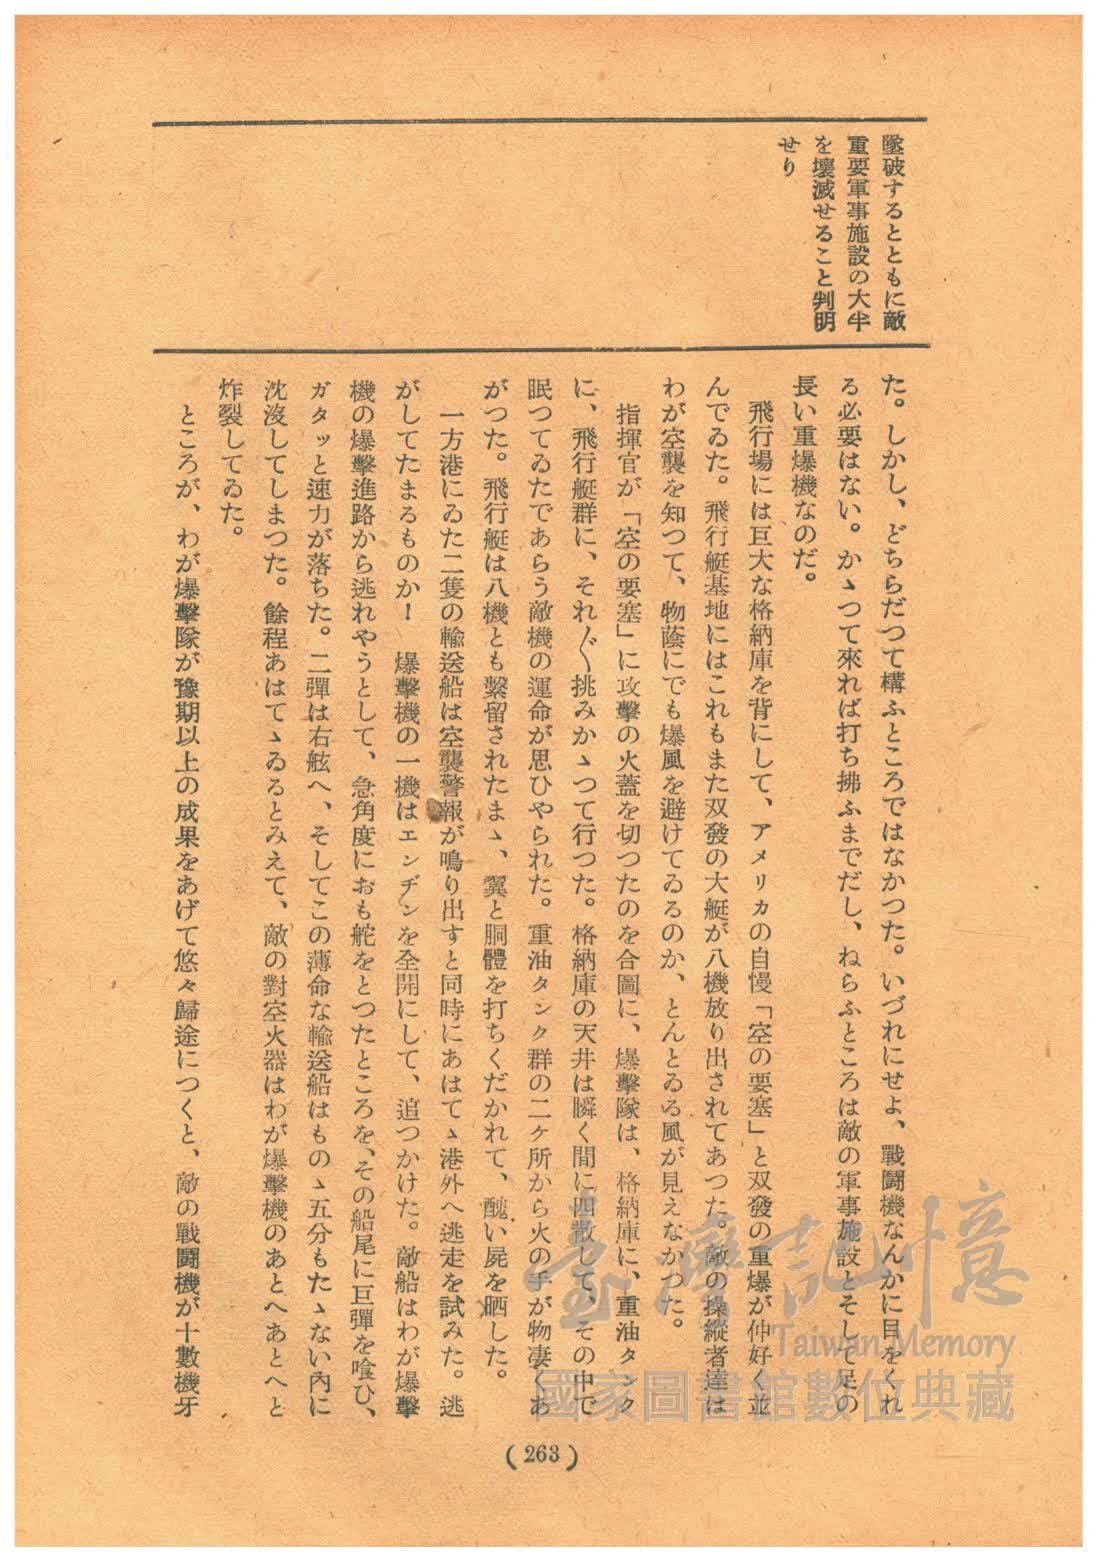 墜破するとともに敵
重要軍事施設の大半
を壞滅せること判明
せり
た。しかし、どちらだつて構ふところではなかつた。いづれにせよ、戰鬪機なんかに目をくれ
る必要はない。かゝつて來れば打ち拂ふまでだし、ねらふところは敵の軍事施設とそして足の
長い重爆機なのだ。
飛行場には巨大な格納庫を背にして、アメリカの自慢「空の要塞」と双發の重爆が仲好く並
んでゐた。飛行艇基地にはこれもまた双發の大艇が八機放り出されてあつた。敵の操縱者達は
わが空襲を知つて、物蔭にでも爆風を避けてゐるのか、とんとゐる風が見えなかつた。
指揮官が「空の要塞」に攻擊の火蓋を切つたのを合圖に、爆擊隊は、格納庫に、重油タンク
に、飛行艇群に、それ〴〵挑みかゝつて行つた。格納庫の天井は瞬く間に四散して、その中で
眠つてゐたであらう敵機の運命が思ひやられた。重油タンク群の二ケ所から火の手が物凄くあ
がつた。飛行艇は八機とも繫留されたまゝ、翼と胴體を打ちくだかれて、醜い屍を晒した。
一方港にゐた二隻の輸送船は空襲警報が鳴り出すと同時にあはてゝ港外へ逃走を試みた。逃
がしてたまるものか！　爆擊機の一機はエンヂンを全開にして、追つかけた。敵船はわが爆擊
機の爆擊進路から逃れやうとして、急角度におも舵をとつたところを、その船尾に巨彈を喰ひ、
ガタッと速力が落ちた。二彈は右舷へ、そしてこの薄命な輸送船はものゝ五分もたゝない內に
沈沒してしまつた。餘程あはてゝゐるとみえて、敵の對空火器はわが爆擊機のあとへあとへと
炸裂してゐた。
ところが、わが爆擊隊が豫期以上の成果をあげて悠々歸途につくと、敵の戰鬪機が十數機牙
(263)
臺灣記憶
Taiwan Memory
國家圖書館數位典藏